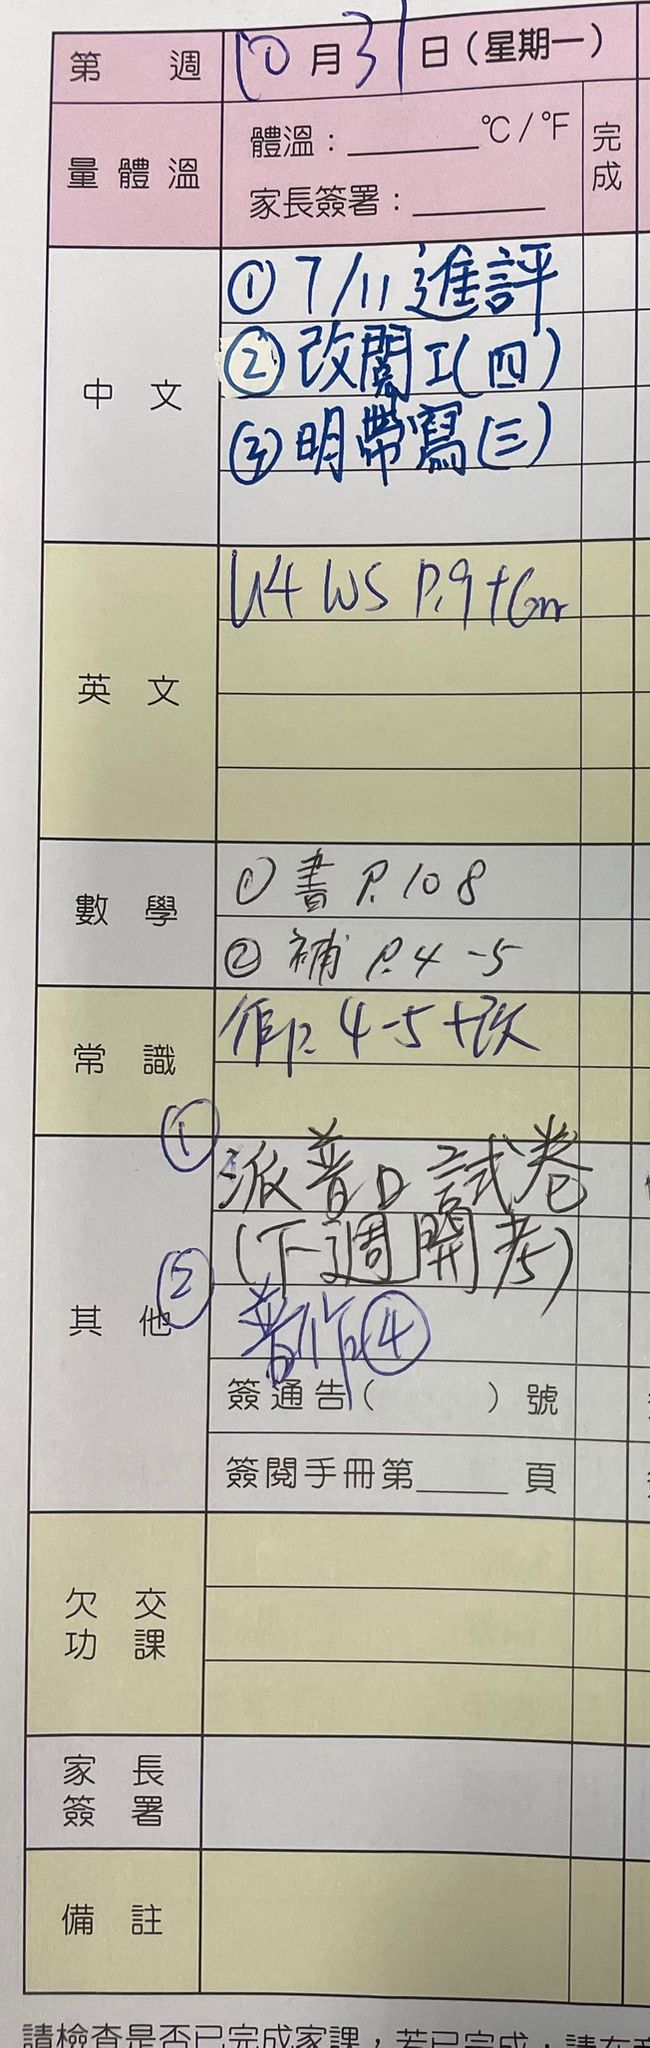 第 週 10月31日(星期一)
量體溫
體溫：______℃/℉
家長簽署：______
完成
中文
① 7/11 進評
② 改閱工(四)
③ 明帶寫(三)
英文
U4 WS P.9+Grr
數學
① 書 P.108
② 補 P.4-5
常識
作P.4-5+改
其他
① 派普口試卷
(下週開考)
② 普作④
簽通告( )號
簽閱手冊第______頁
欠交功課
家長簽署
備註
請檢查是否已完成家課，若已完成，請在